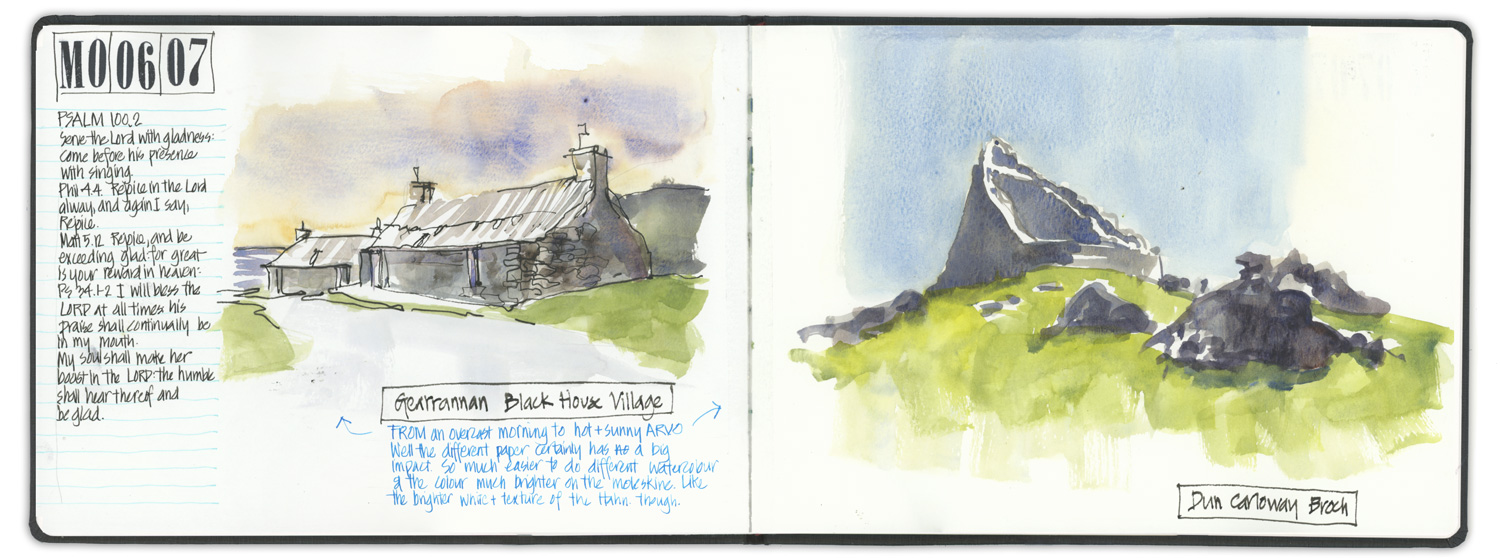 MO 06 07
PSALM 100.2
Serve the Lord with gladness:
come before his presence
with singing.
Phil 4.4. Rejoice in the Lord
alway, and again I say,
Rejoice.
Matt 5.12 Rejoice, and be
exceeding glad: for great
is your reward in heaven:
Ps 34.1-2 I will bless the
LORD at all times his
praise shall continually be
in my mouth.
My soul shall make her
boast in the LORD: the humble
shall hear thereof and
be glad.
Gearrannan Black House Village
FROM an overcast morning to hot + sunny ARVO
Well the different paper certainly has a big
impact. So much easier to do different watercolour
& the colour much brighter on the moleskine. Like
the brighter white + texture of the Hahn. though.
Dun Carloway Broch